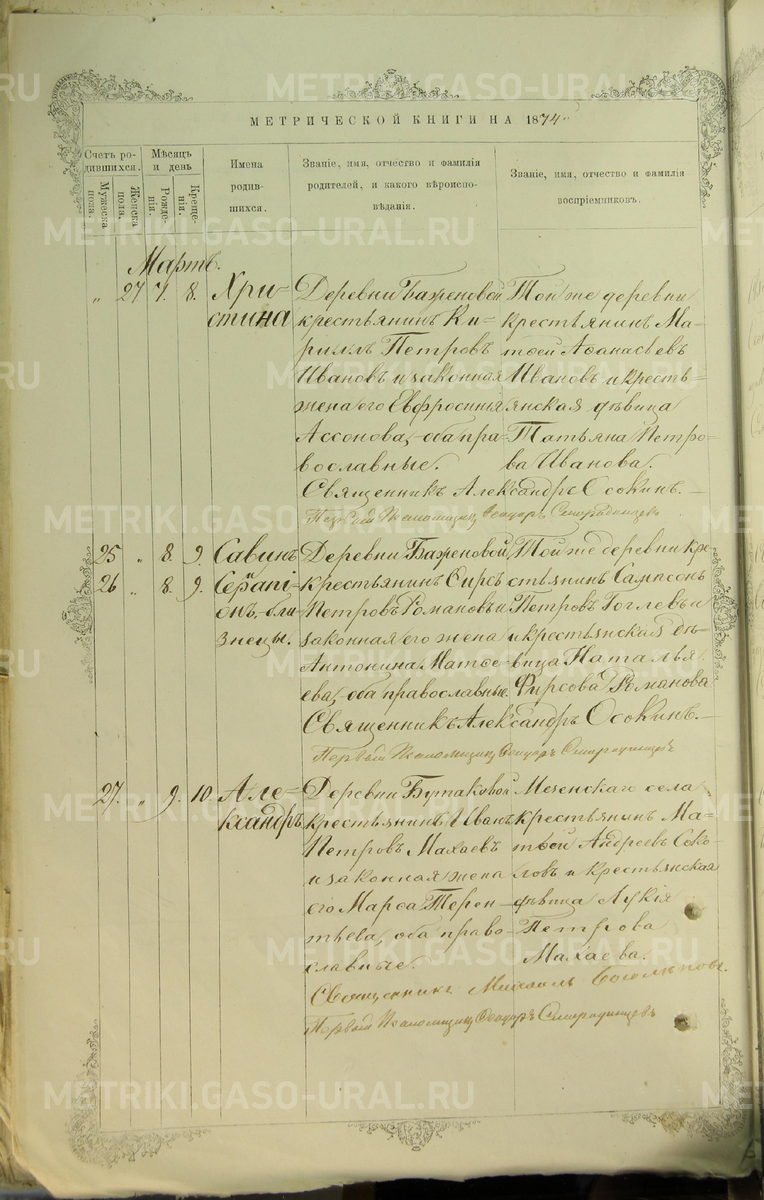 МЕТРИЧЕСКОЙ КНИГИ НА 1874
Счетъ родившихся.
Мужеска пола.
Женска пола.
Мѣсяцъ и день
Рожденія.
Крещенія.
Имена родившихся.
Званіе, имя, отчество и фамилія родителей, и какого вѣроисповѣданія.
Званіе, имя, отчество и фамилія воспріемниковъ.
Мартъ.
„ 27 7. 8. Христина
Деревни Баженовой
крестьянинъ Ки-
риллъ Петровъ
Ивановъ и законная
жена его Евфросинія
Ассонова, оба пра-
вославные.
Той же деревни
крестьянинъ Ма-
твей Аѳанасьевъ
Ивановъ и кресть-
янская дѣвица
Татьяна Петро-
ва Иванова.
Священникъ Александръ Осокинъ.
25 „ 8. 9. Савинъ
26 „ 8. 9. Серапі-
онъ, бли-
знецы.
Деревни Баженовой,
крестьянинъ Фирсъ
Петровъ Романовъ и
законная его жена
Антонина Матѳе-
ева, оба православные.
Той же деревни кре-
стьянинъ Сампсонъ
Петровъ и
и крестьянская дѣ-
вица Наталья
Фирсова Романова
Священникъ Александръ Осокинъ.
27. „ 9. 10. Але-
ксандръ
Деревни Бутаковой
крестьянинъ Иванъ
Петровъ Махаевъ
и законная жена
его Марѳа Терен-
тьева, оба право-
славные.
Мезенскаго села
крестьянинъ Ма-
твей Андреевъ Соко-
ловъ и крестьянская
дѣвица Лукія
Петрова
Махаева.
Священникъ Михаилъ
METRIKI.GASO-URAL.RU